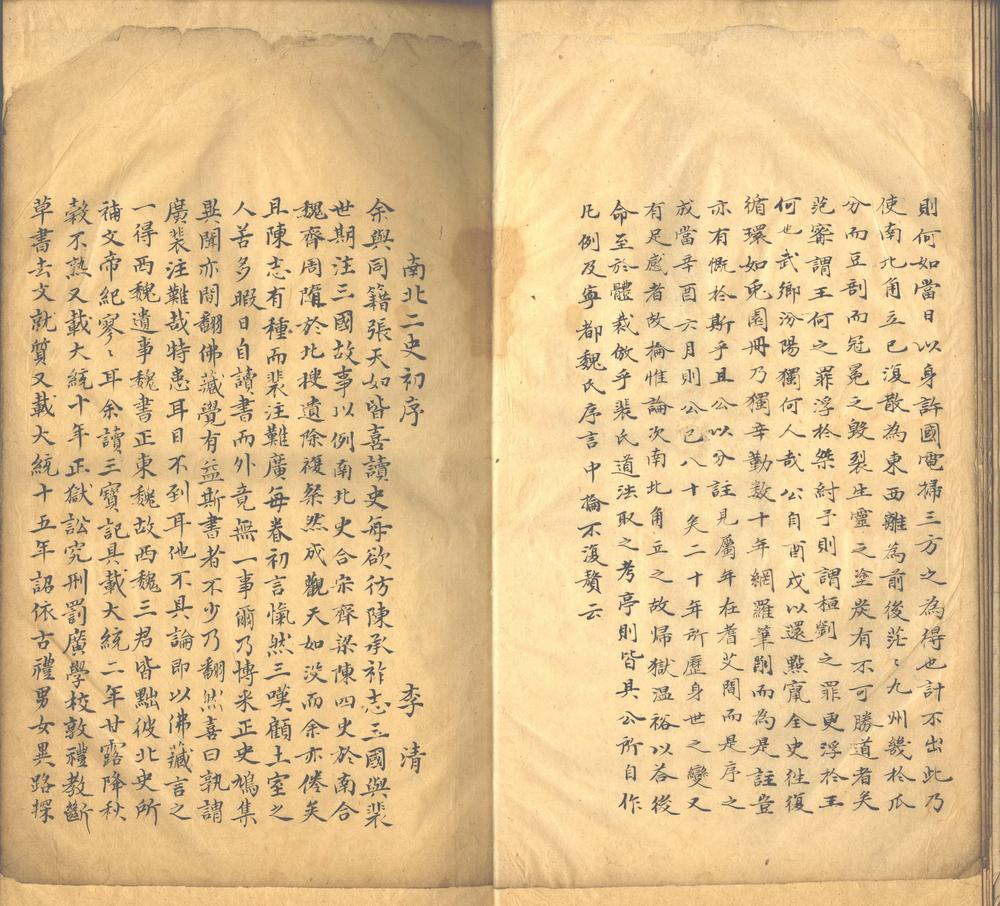 則何如當日以身許國電掃三方之為得也計不出此乃
使南北角立已復散為東西離為前後茫〻九州幾於瓜
分而豆剖而冠冕之毀裂生靈之塗炭有不可勝道者矣
范寗謂王何之罪浮於桀紂予則謂桓劉之罪更浮於王
何也武鄉汾陽獨何人哉公自酉戌以還點竄全史往復
循環如兎園冊乃獨辛勤數十年網羅筆削而為是註豈
亦有慨於斯乎且公以分註見屬年在耆艾間而是序之
成當辛酉六月則公已八十矣二十年所歷身世之變又
有足感者故掄惟論次南北角立之故歸獄溫裕以荅後
命至於體裁倣乎裴氏道法取之考亭則皆具公所自作
凡例及寧都魏氏序言中掄不復贅云
南北二史初序　李清
余與同籍張天如皆喜讀史每欲仿陳承祚志三國與裴
世期注三國故事以例南北史合宋齊梁陳四史於南合
魏齊周隋於北搜遺除複粲然成觀天如没而余亦倦矣
且陳志有種而裴注難廣每卷初言愾然三嘆顧土室之
人苦多暇日自讀書而外竟無一事爾乃博采正史鳩集
異聞亦間翻佛藏覺有益斯書者不少乃翻然喜曰孰謂
廣裴注難哉特患耳目不到耳他不具論即以佛藏言之
一得西魏遺事魏書正東魏故西魏三君皆黜彼北史所
補文帝紀寥〻耳余讀三寶記具載大統二年甘露降秋
穀不熟又載大統十年正獄訟究刑罰廣學校敦禮教斷
草書去文就質又載大統十五年詔依古禮男女異路探